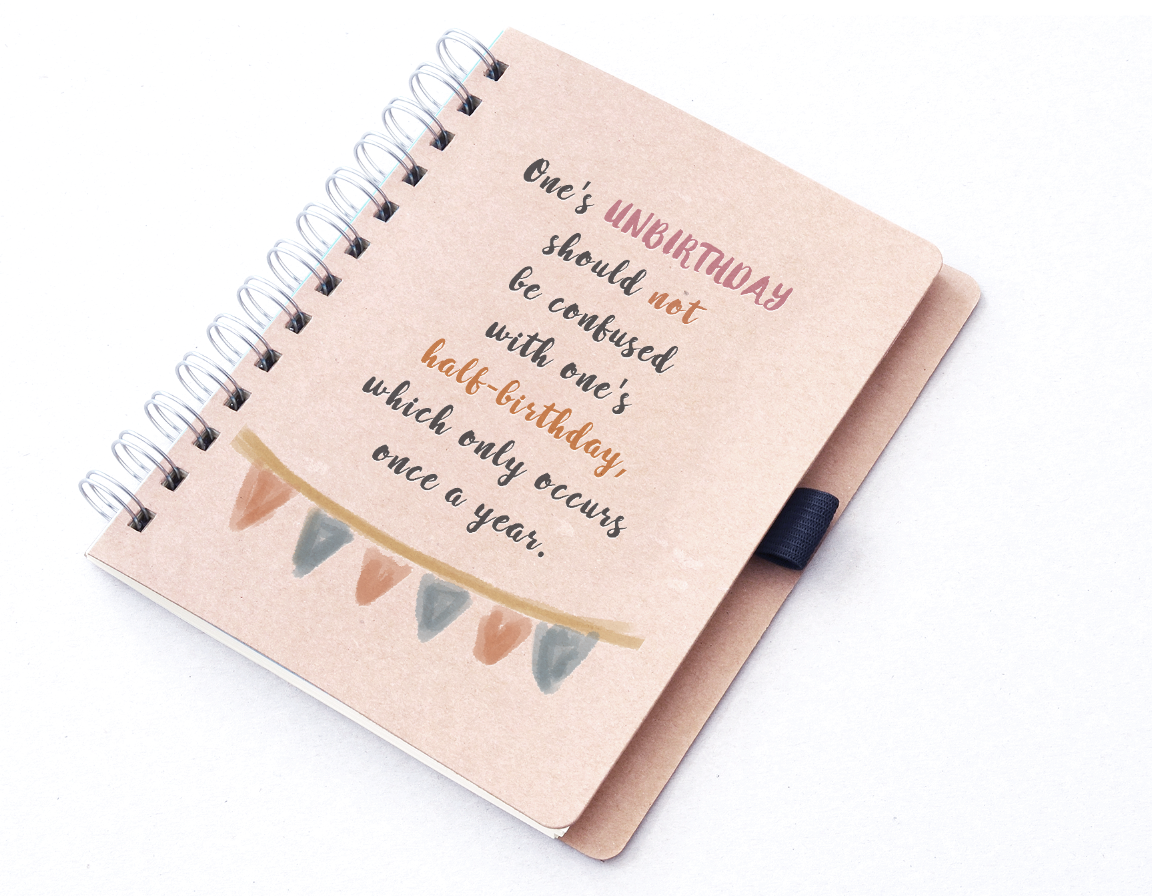 One's UNBIRTHDAY
should not
be confused
with one's
half-birthday,
which only occurs
once a year.